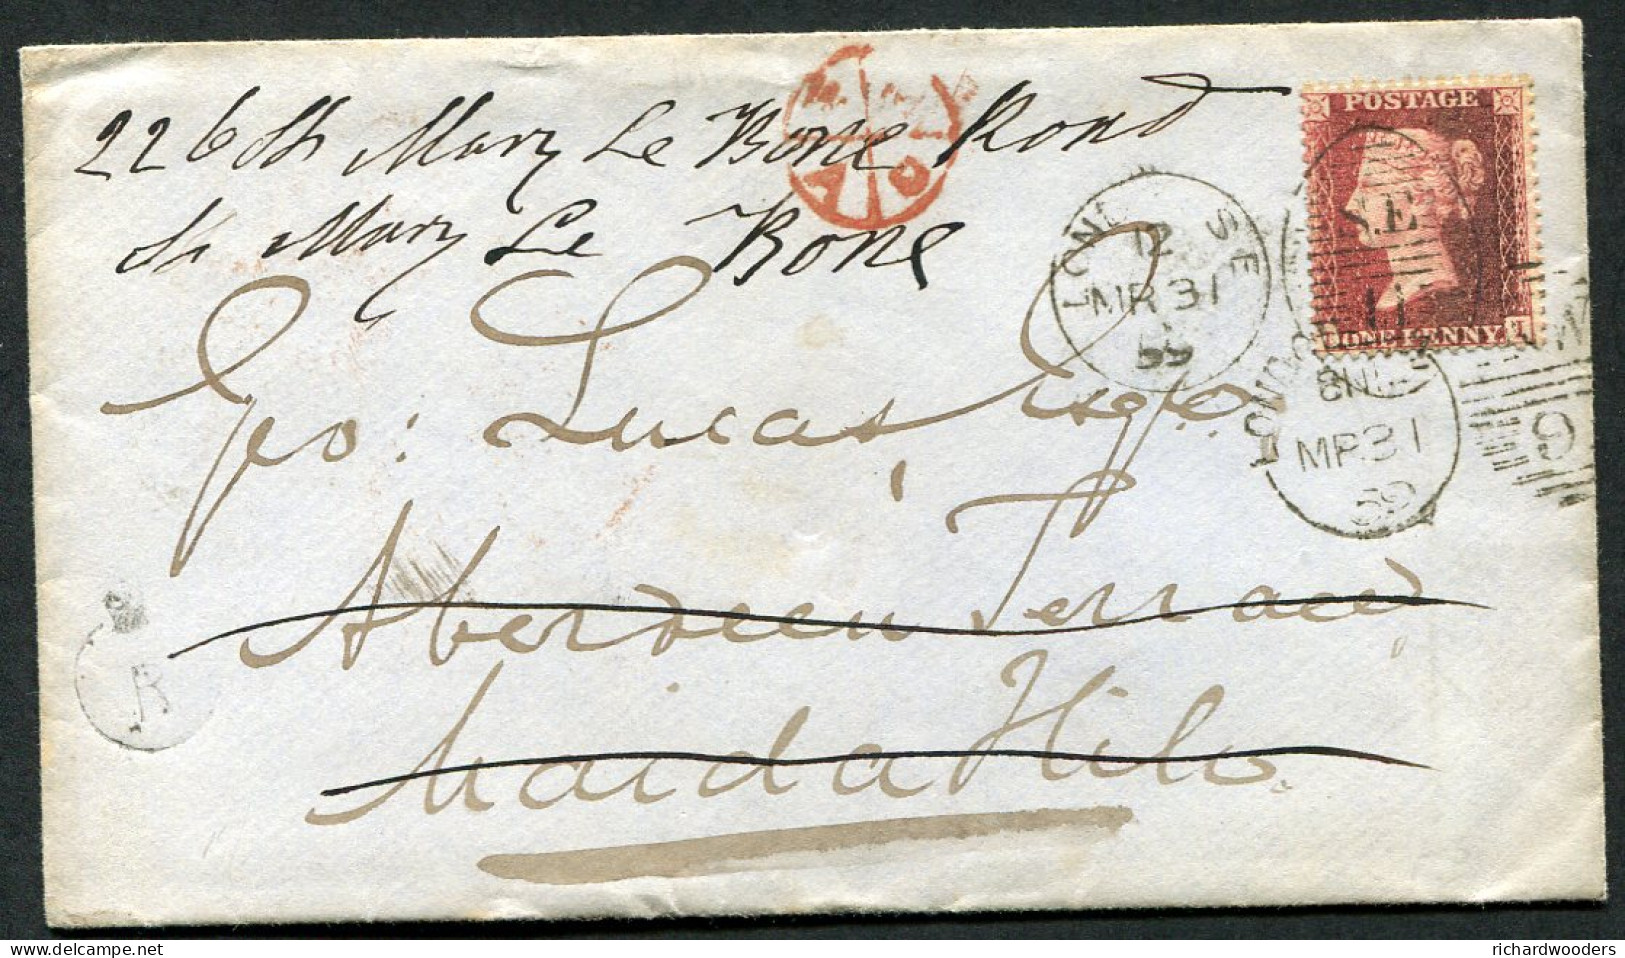 226 St Mary Le Bone Road
St Mary Le Bone
Geo: Lucas Esqr.
Aberdeen Terrace
Maida Hill.
POSTAGE
ONE PENNY
S.E
11
LONDON SE
12
MR 31
59
LONDON
8
MR 31
59
9
R
richardwooders